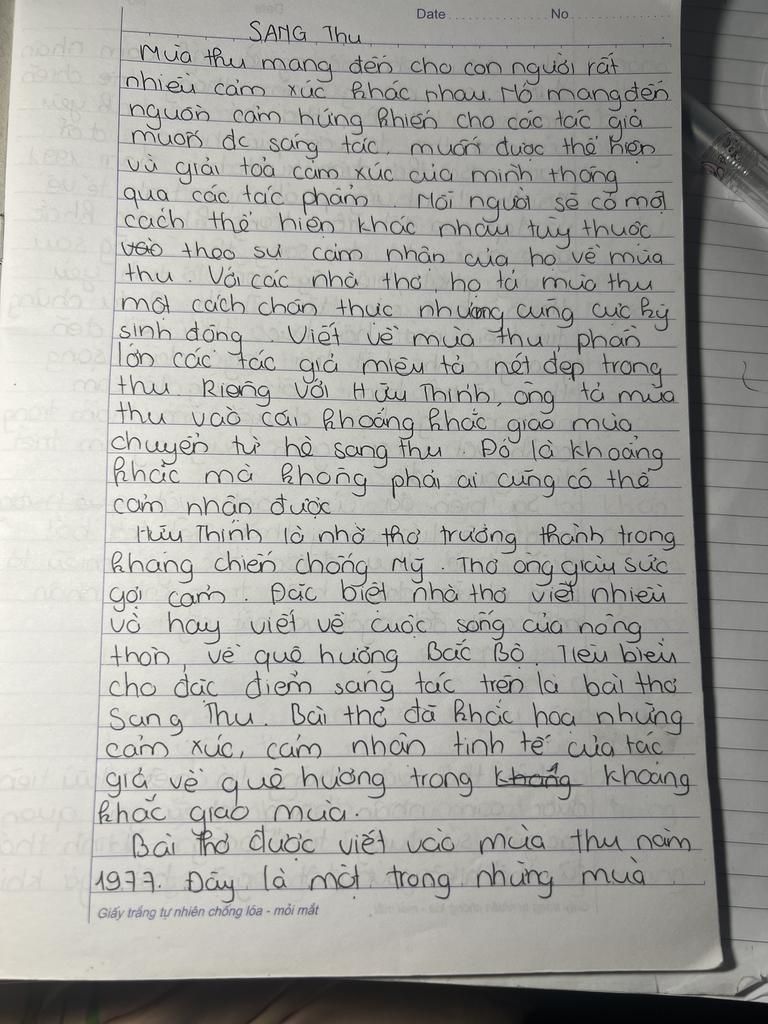 Date No
SANG Thu
Mùa thu mang đến cho con người rất
nhiều cảm xúc khác nhau. Nó mang đến
nguồn cảm hứng khiến cho các tác giả
muốn đc sáng tác, muốn được thể hiện
và giải toả cảm xúc của mình thông
qua các tác phẩm. Mỗi người sẽ có một
cách thể hiện khác nhau tùy thuộc
vào theo sự cảm nhận của họ về mùa
thu. Với các nhà thơ, họ tả mùa thu
một cách chân thực nhưng cũng cực kỳ
sinh động. Viết về mùa thu, phần
lớn các tác giả miêu tả nét đẹp trong
thu. Riêng với Hữu Thỉnh, ông tả mùa
thu vào cái khoảng khắc giao mùa
chuyển từ hè sang thu. Đó là khoảng
khắc mà không phải ai cũng có thể
cảm nhận được
Hữu Thỉnh là nhà thơ trưởng thành trong
kháng chiến chống Mỹ. Thơ ông giàu sức
gợi cảm. Đặc biệt nhà thơ viết nhiều
và hay viết về cuộc sống của nông
thôn, về quê hương Bắc Bộ. Tiêu biểu
cho đặc điểm sáng tác trên là bài thơ
Sang Thu. Bài thơ đã khắc hoạ những
cảm xúc, cảm nhận tinh tế của tác
giả về quê hương trong khoảng khoảng
khắc giao mùa.
Bài thơ được viết vào mùa thu năm
1977. Đây là một trong những mùa
Giấy trắng tự nhiên chống lóa - mỏi mắt